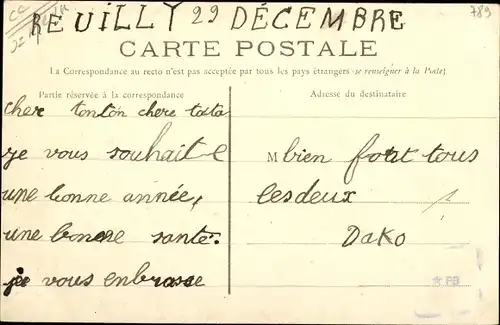 REUILLY 29 DÉCEMBRE
789
CARTE POSTALE
La Correspondance au recto n'est pas acceptée par tous les pays étrangers (se renseigner à la Poste)
Partie réservée à la correspondance
cher tonton chere tata
je vous souhaite
une bonne année,
une bonne santé.
je vous enbrasse
Adresse du destinataire
M bien fort tous
les deux
Dako
PB